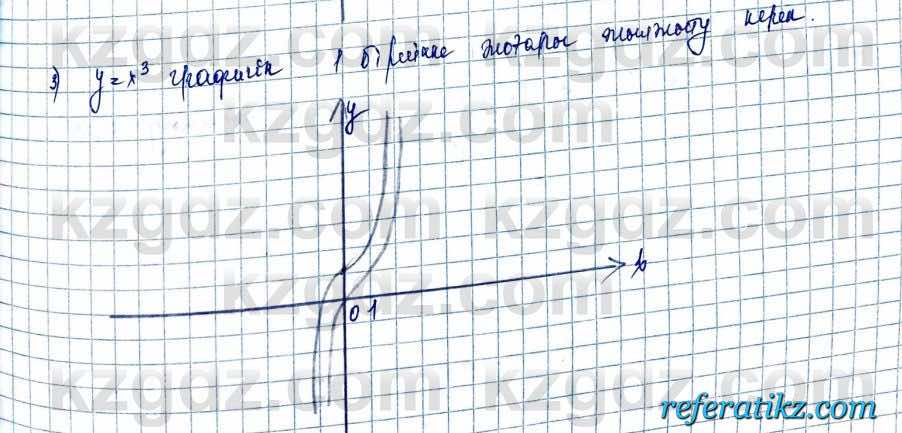 3) y=x³ графигін 1 бірлікке жоғары жылжыту керек.
y
x
0 1
kzgdz.com
kzgdz.com kzgdz.com
kzgdz.com
kzgdz.com kzgdz.com
referatikz.com